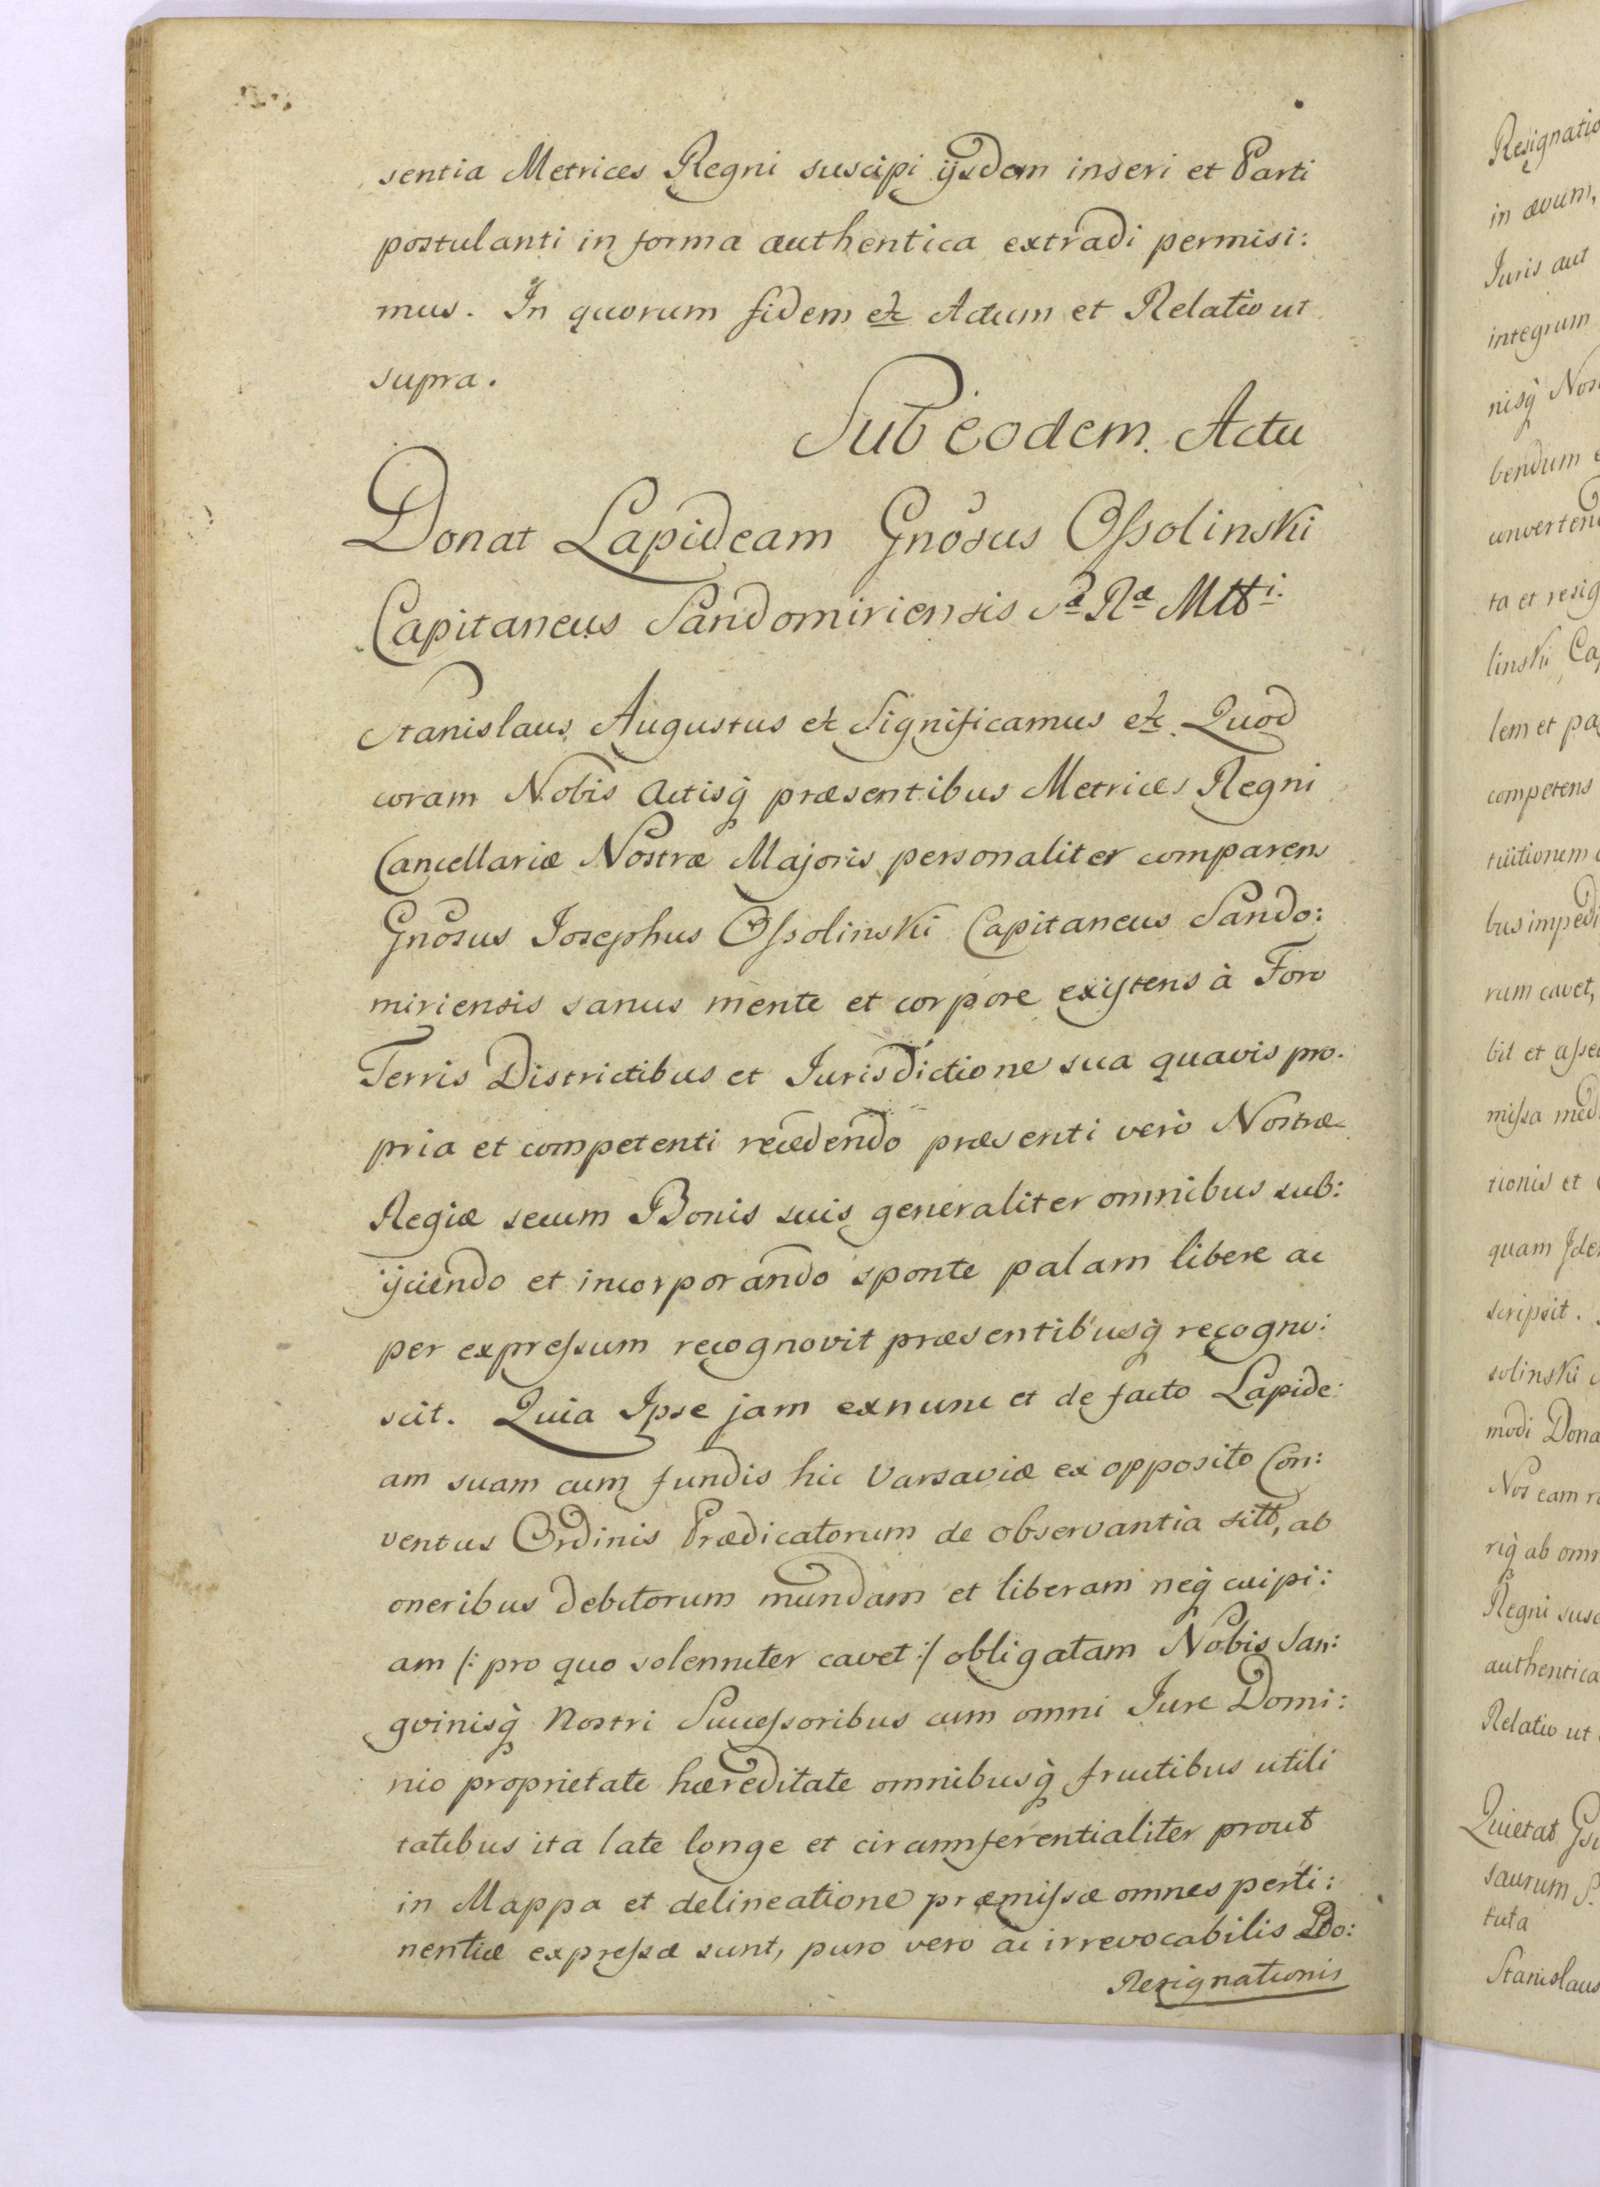 sentia Metrices Regni suscipi ijsdem inseri et Parti
postulanti in forma authentica extradi permisi:
mus. In quorum fidem etc Actum et Relatio ut
supra.
Sub eodem Actu
Donat Lapideam Gnosus Ossolinski
Capitaneus Sandomiriensis Sæ Ræ Mtti.
Stanislaus Augustus etc Significamus etc Quod
coram Nobis actisq̃ præsentibus Metrices Regni
Cancellariæ Nostræ Majoris personaliter comparens
Gnosus Josephus Ossolinski Capitaneus Sando:
miriensis sanus mente et corpore existens à Foro
Terris Districtibus et Jurisdictione sua quavis pro.
pria et competenti recedendo præsenti verò Nostræ
Regiæ secum Bonis suis generaliter omnibus sub:
ijciendo et incorporando sponte palam libere ac
per expressum recognovit præsentibusq̃ recogno:
scit. Quia Ipse jam exnunc et de facto Lapide:
am suam cum fundis hic Varsaviæ ex opposito Con:
ventus Ordinis Prædicatorum de observantia sitt, ab
oneribus debitorum mundam et liberam neq̃ cuipi:
am /: pro quo solenniter cavet :/ obligatam Nobis San:
gvinisq̃ Nostri Successoribus cum omni Jure Domi:
nio proprietate hæreditate omnibusq̃ fructibus utili
tatibus ita late longe et circumferentialiter prout
in Mappa et delineatione præmissæ omnes perti:
nentiæ expressæ sunt, puro vero ac irrevocabilis Do:
Resignationis
Resignatio
in ævum,
Juris aut
integrum
nisq̃ Nos
bendum e
convertend
ta et resig
linski Cap
lem et pa
competens
tuitionem
bus impedi
rum cavet,
bit et asse
missa med
tionis et
quam Ide
scripsit.
solinski
modi Dona
Nos eam r
riq̃ ab omn
Regni susc
authentica
Relatio ut
Quietat
saurum S.
tuta
Stanislaus